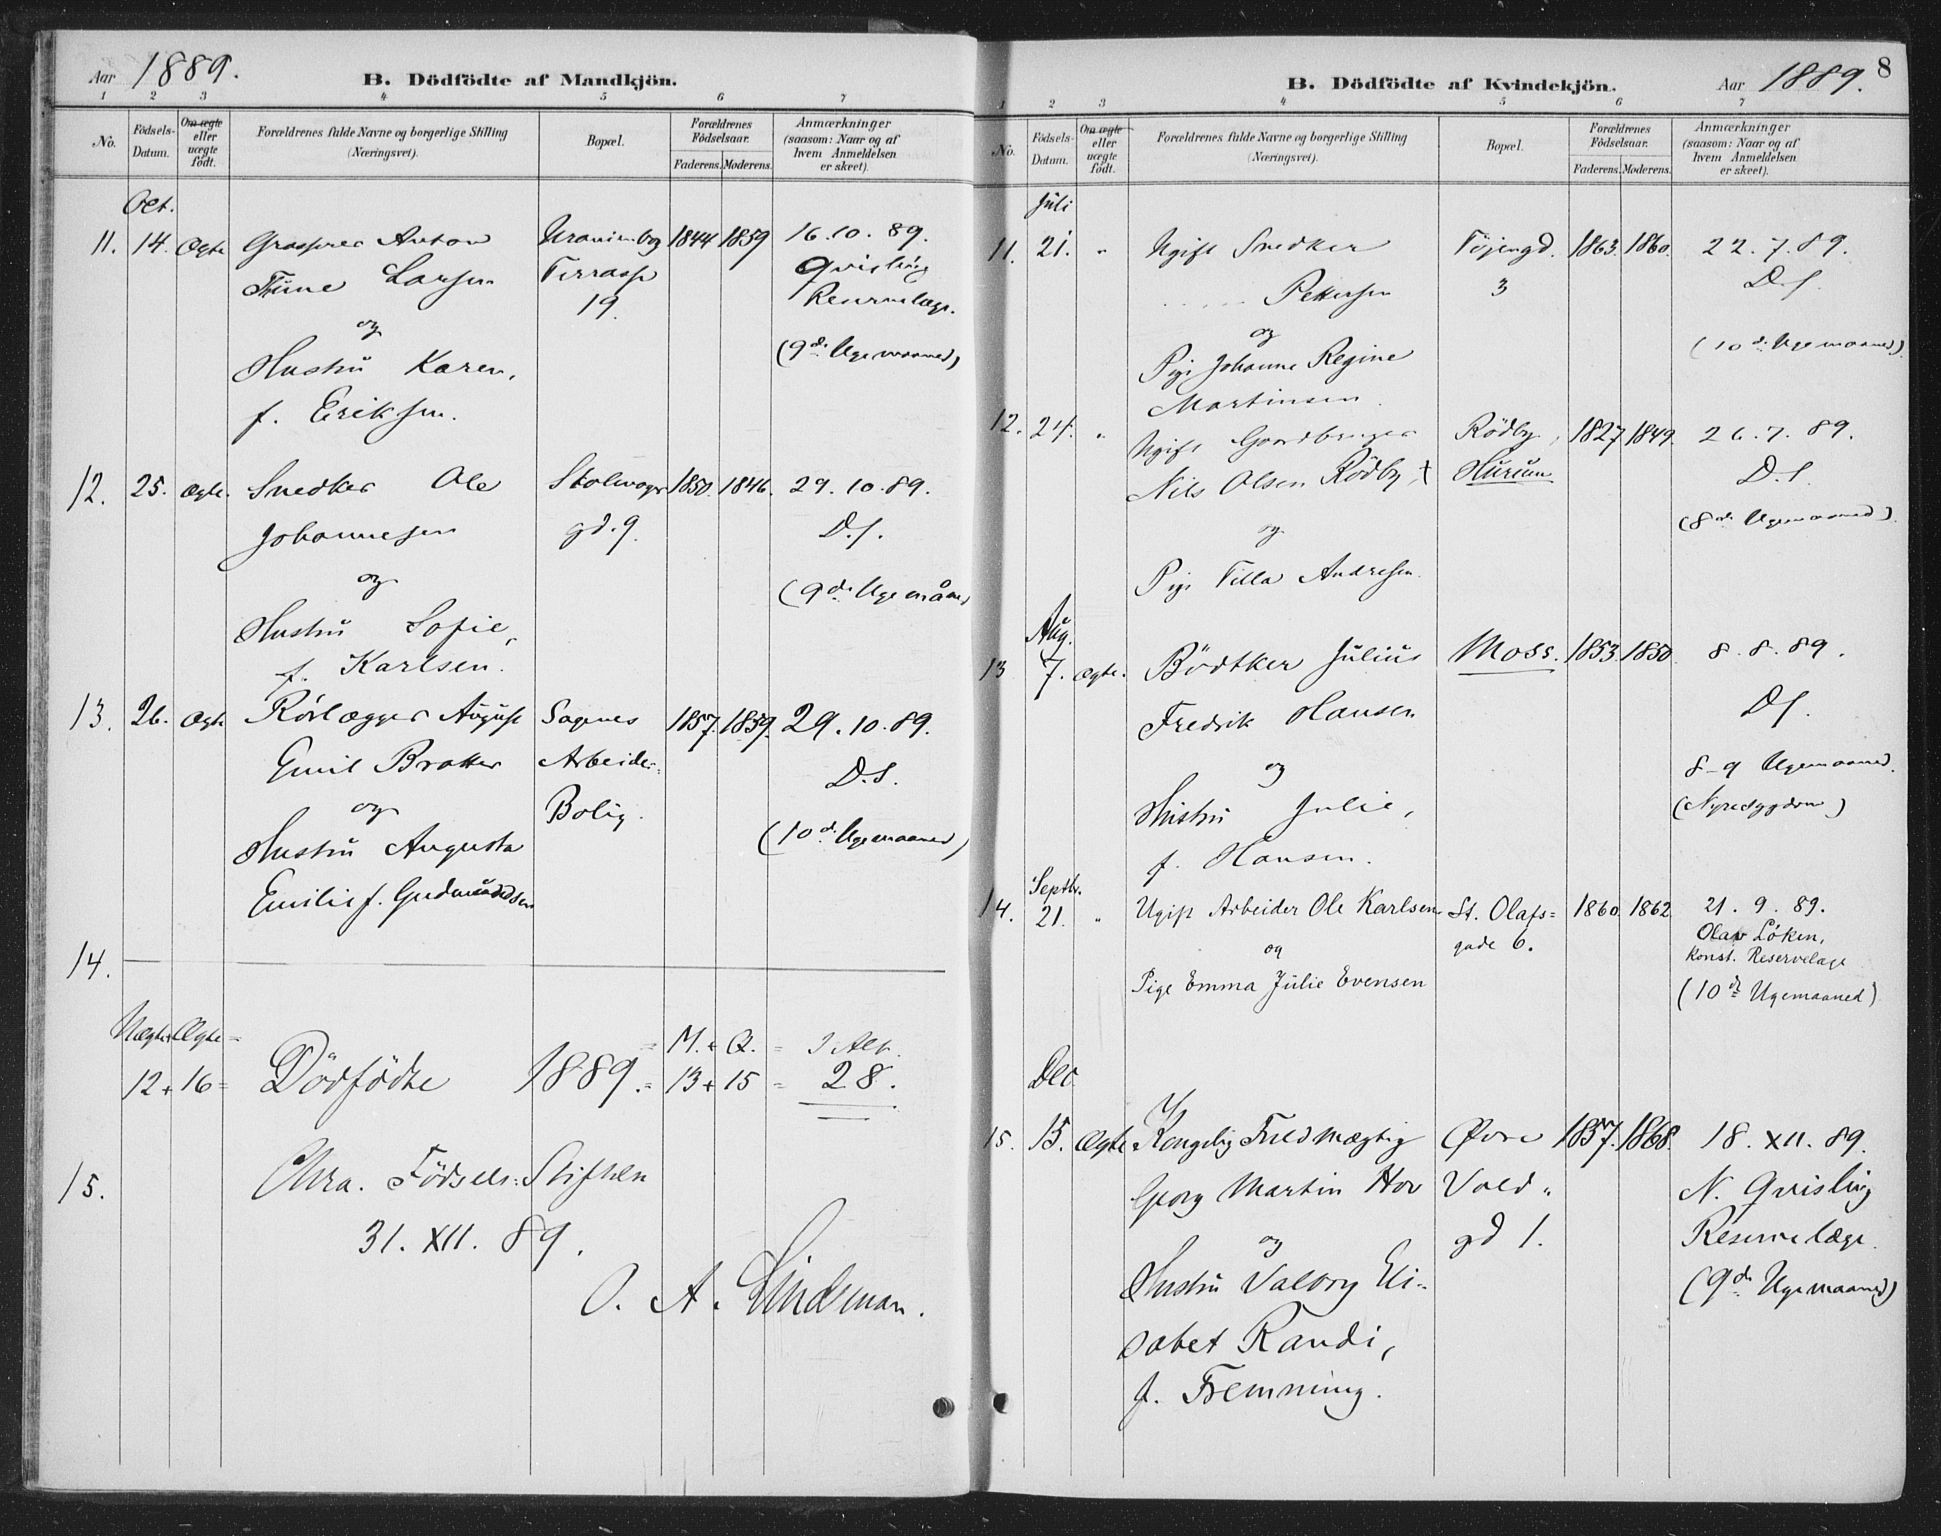 Aar 1889.
B. Dödfödte af Mandkjön.
1 2 3 4 5 6 7
No.
Födsels-Datum.
Om ægte eller uægte födt.
Forældrenes fulde Navne og borgerlige Stilling
(Næringsvei).
Bopæl.
Forældrenes Födselsaar.
Faderens. Moderens.
Anmærkninger
(saasom: Naar og af
hvem Anmeldelsen
er skeet).
Oct.
11. 14. Ægte Anton 1844 1859 16.10.89.
Tune Larsen Terrasse Qvisling
19. Reservelæge.
og
Hustru Karen, (9de Ugemaaned)
f. Eriksen.
12. 25. ægte. Snedker Ole 1850. 1846. 29.10.89.
Johannesen gd. 9. D.S.
og (9de Ugemåned
Hustru Sofie,
f. Karlsen.
13. 26. Ægte Rörlægger August Sagenes 1857. 1859. 29.10.89.
Emil Arbeider- D.S.
og Bolig.
Hustru Augusta (10de Ugemaaned)
Emilie f. Gudmundsen
14.
Uægte Ægte = M. + Q. = I Alt.
12 + 16 = Dödfödte 1889. = 13 + 15 = 28.
15. Chra. Födsels-Stiftelse
31. XII. 89.
O. A. Lindeman.
B. Dödfödte af Kvindekjön.
Aar 1889.
8
1 2 3 4 5 6 7
No.
Födsels-Datum.
Om ægte eller uægte födt.
Forældrenes fulde Navne og borgerlige Stilling
(Næringsvei).
Bopæl.
Forældrenes Födselsaar.
Faderens. Moderens.
Anmærkninger
(saasom: Naar og af
hvem Anmeldelsen
er skeet).
Juli
11. 21. " Ugift Snedker Töjengd. 1863. 1860. 22.7.89.
Pettersen 3 D.S.
og (10de Ugemaaned)
Pige Johanne Regine
Martinsen.
12. 24. " Ugift Gaardbruger Rödby, 1827 1849 26.7.89.
Nils Olsen Rödby, Hurum D.S.
og (8de Ugemaaned).
Pige Tilla Andresen.
Aug.
13 7. ægte. Bödtker Julius Moss. 1853. 1850. 8.8.89.
Fredrik Hansen D.S.
og 8-9 Ugemaaned.
Hustru Julie, (Nyresygdom)
f. Hansen.
Septbr.
14. 21. " Ugift Arbeider Ole Karlsen St. Olafs= 1860. 1862 21.9.89.
og gade 6. Olav Löken,
Konst. Reservelæge
Pige Emma Julie Evensen (10de Ugemaaned)
Dec
15. 15. Ægte Kongelig Fuldmægtig Øvre 1857. 1868. 18.XII.89.
Georg Martin Hov Vold= N. Qvisling
og gd 1. Reservelæge.
Hustru Valborg Eli- (9de Ugemaaned)
sabet Randi,
f. Fremming.